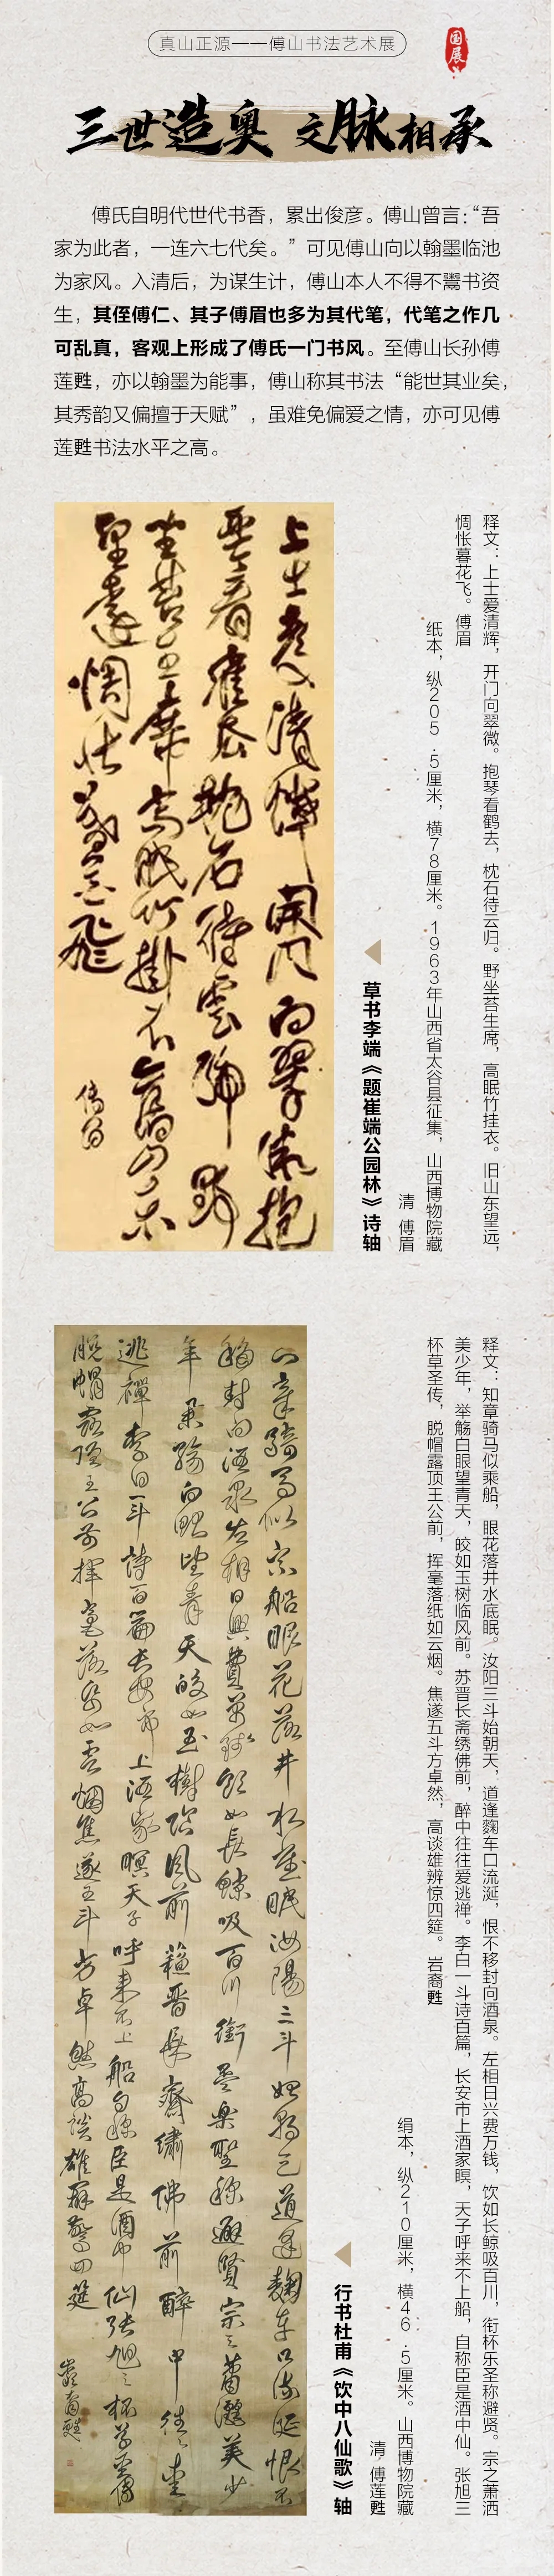 真山正源——傅山书法艺术展
国展
三世造奥 文脉相承
傅氏自明代世代书香，累出俊彦。傅山曾言：“吾
家为此者，一连六七代矣。”可见傅山向以翰墨临池
为家风。入清后，为谋生计，傅山本人不得不鬻书资
生，其侄傅仁、其子傅眉也多为其代笔，代笔之作几
可乱真，客观上形成了傅氏一门书风。至傅山长孙傅
莲甦，亦以翰墨为能事，傅山称其书法“能世其业矣，
其秀韵又偏擅于天赋”，虽难免偏爱之情，亦可见傅
莲甦书法水平之高。
释文：上士爱清辉，开门向翠微。抱琴看鹤去，枕石待云归。野坐苔生席，高眠竹挂衣。旧山东望远，
惆怅暮花飞。傅眉
纸本，纵205.5厘米，横78厘米。1963年山西省太谷县征集，山西博物院藏
清 傅眉
草书李端《题崔端公园林》诗轴
上士愛清輝開門向翠微抱
琴看鶴去枕石待雲歸野
坐苔生席高眠竹掛衣舊山東
望遠惆悵暮花飛
傅眉
释文：知章骑马似乘船，眼花落井水底眠。汝阳三斗始朝天，道逢麴车口流涎，恨不移封向酒泉。左相日兴费万钱，饮如长鲸吸百川，衔杯乐圣称避贤。宗之萧洒
美少年，举觞白眼望青天，皎如玉树临风前。苏晋长斋绣佛前，醉中往往爱逃禅。李白一斗诗百篇，长安市上酒家瞑，天子呼来不上船，自称臣是酒中仙。张旭三
杯草圣传，脱帽露顶王公前，挥毫落纸如云烟。焦遂五斗方卓然，高谈雄辨惊四筵。岩裔甦
绢本，纵210厘米，横46.5厘米。山西博物院藏
清 傅莲甦
行书杜甫《饮中八仙歌》轴
知章騎馬似乘船眼花落井水底眠汝陽三斗始朝天道逢麴車口流涎恨不
移封向酒泉左相日興費萬錢飲如長鯨吸百川銜杯樂聖稱避賢宗之蕭灑美少
年舉觴白眼望青天皎如玉樹臨風前蘇晉長齋繡佛前醉中往往愛
逃禪李白一斗詩百篇長安市上酒家瞑天子呼來不上船自稱臣是酒中仙張旭三杯草聖傳
脫帽露頂王公前揮毫落紙如雲烟焦遂五斗方卓然高談雄辨驚四筵
巖裔甦